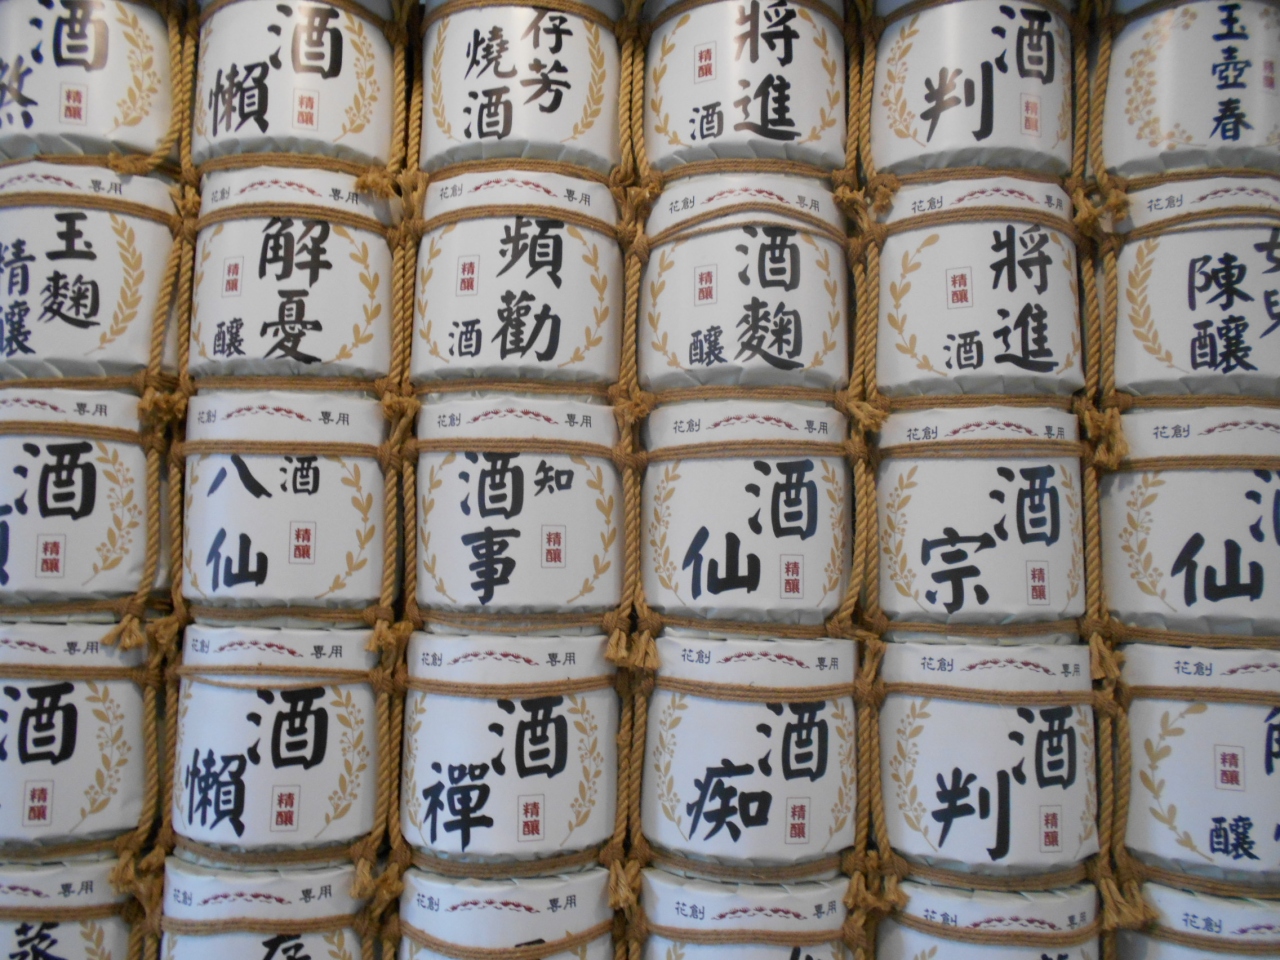 酒
精釀
酒懶
精釀
仔芳
燒酒
將進
酒
精釀
酒判
精釀
玉壺春
專用
花創 專用
花創 專用
花創 專用
花創 專用
花創
玉麴
精釀
解憂
釀
精釀
頻勸
酒
精釀
酒麴
釀
精釀
將進
酒
精釀
陳釀
專用
花創 專用
花創 專用
花創 專用
花創 專用
花創
酒
精釀
酒
八仙
精釀
知
酒事
精釀
酒仙
精釀
酒宗
精釀
仙
專用
花創 專用
花創 專用
花創 專用
花創 專用
花創
酒
精釀
酒懶
精釀
酒禪
精釀
酒痴
精釀
酒判
精釀
釀
精釀
專用
花創 專用
花創 專用
花創 專用
花創 專用
花創